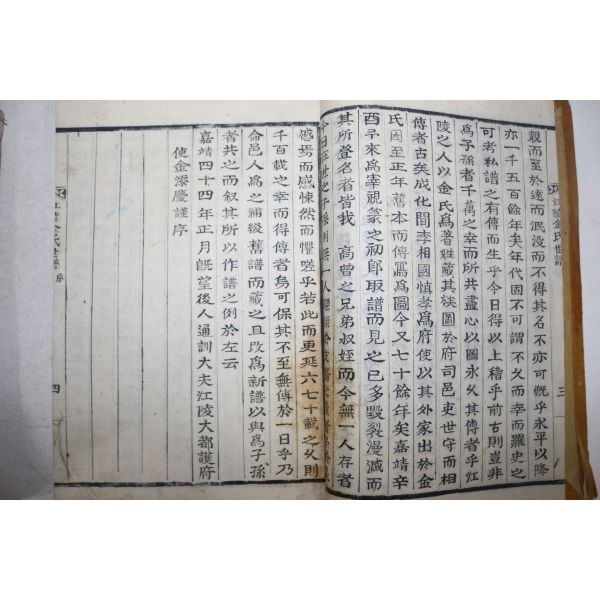 親而至於遠而泯没而不得其名不亦可慨乎永平以降
亦一千五百餘年矣年代固不可謂不久而幸而羅史之
可考私譜之有傳而生乎今日得以上稽乎前古則豈非
爲子孫者千萬之幸而所共盡心以圖永久其傳者乎江
陵之人以金氏爲著姓藏其族圖於府司邑吏世守而相
傳者古矣成化間李相國愼孝爲府使以其外家出於金
氏因至正年舊本而傳寫爲圖今又七十餘年矣嘉靖辛
酉予來爲宰視篆之初郎取譜而見之已多毀裂漫滅而
其所登名者皆我 高曾之兄弟叔姪而今無一人存者
今日
感焉而感悚然而懼嗟乎若此而更延六七十載之久則
千百載之幸而得傳者烏可保其不至無傳於一日乎乃
命邑人爲之補綴舊譜而藏之且改爲新譜以與爲子孫
者共之而叙其所以作譜之例於左云
嘉靖四十四年正月旣望後人通訓大夫江陵大都護府
使金添慶謹序
江陵金氏世譜
三
江陵金氏世譜 序
四